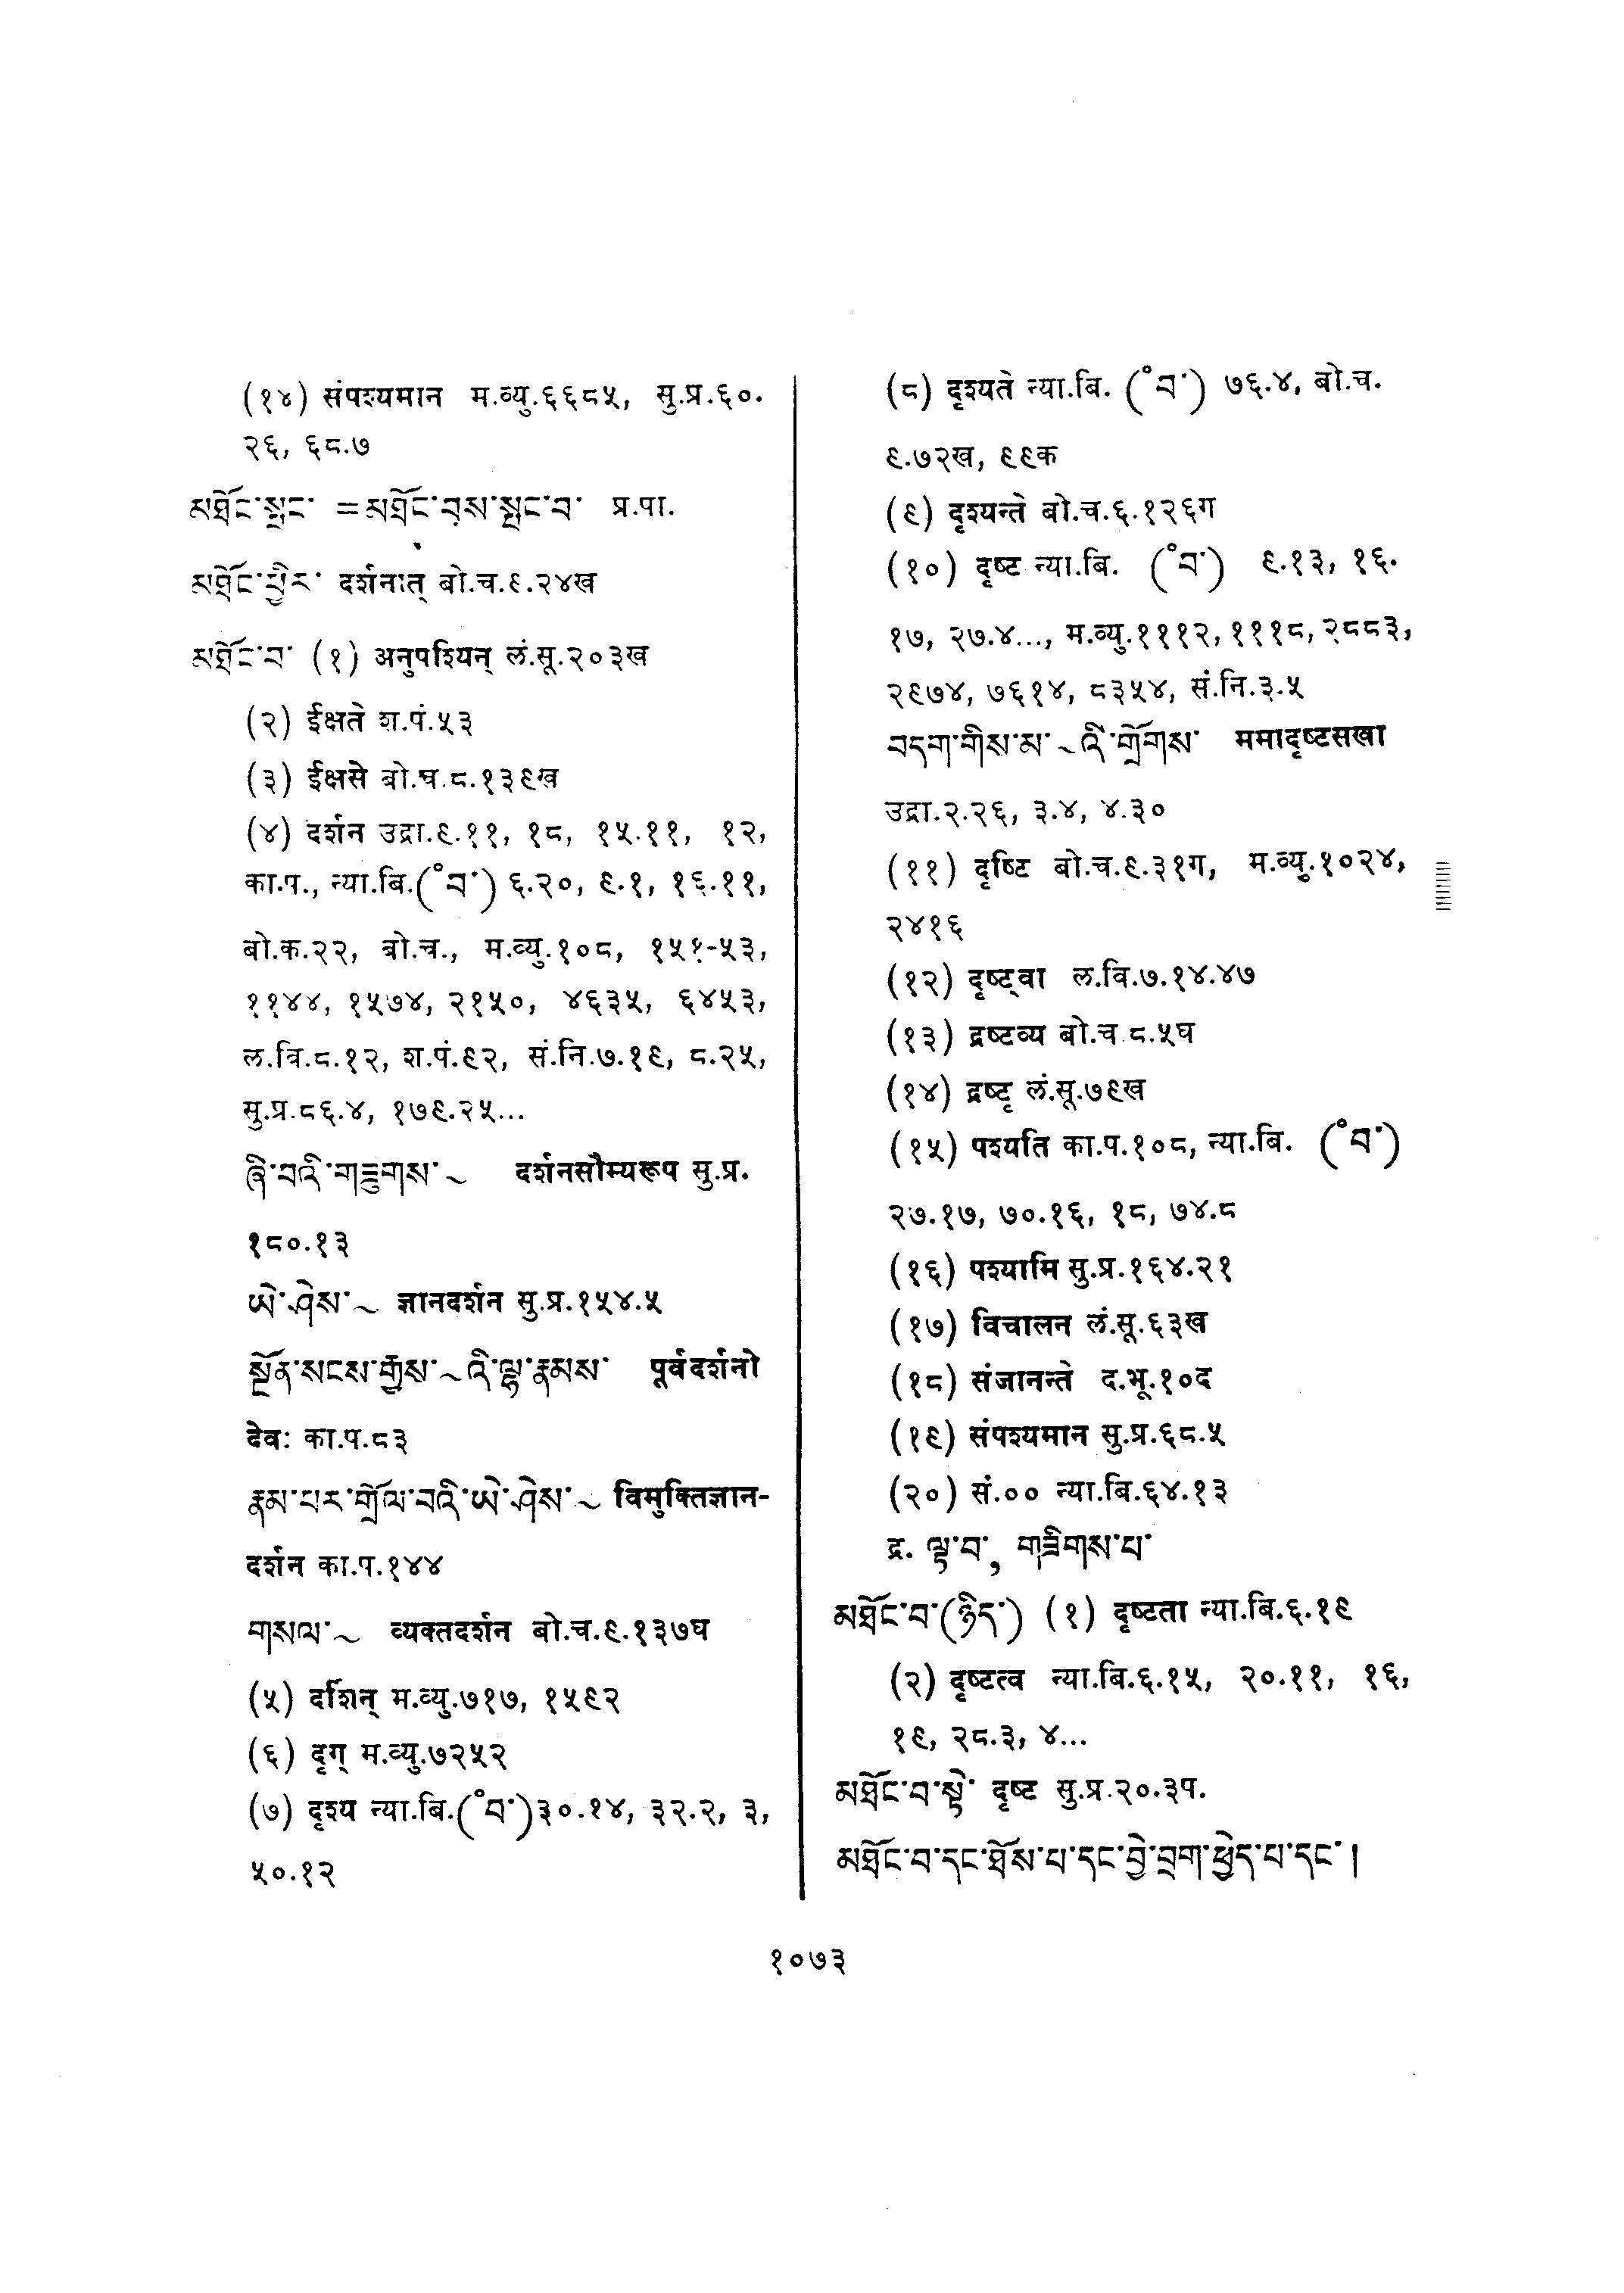 (१४) संपश्यमान म.व्यु.६६८५, सु.प्र.६०.
२६, ६८.७
མཐོང་སྤང་ =མཐོང་བས་སྤང་བ་ प्र.पा.
མཐོང་ཕྱིར་ दर्शनात् बो.च.९.२४ख
མཐོང་བ་ (१) अनुपश्यिन् लं.सू.२०३ख
(२) ईक्षते श.पं.५३
(३) ईक्षसे बो.च.८.१३९ख
(४) दर्शन उद्रा.९.११, १८, १५.११, १२,
का.प., न्या.बि.(ºབ་) ६.२०, ९.१, १६.११,
बो.क.२२, बो.च., म.व्यु.१०८, १५१-५३,
११४४, १५७४, २१५०, ४६३५, ६४५३,
ल.वि.८.१२, श.पं.९२, सं.नि.७.१९, ८.२५,
सु.प्र.८६.४, १७९.२५...
ཞི་བའི་གཟུགས་~ दर्शनसौम्यरूप सु.प्र.
१८०.१३
ཡེ་ཤེས་~ ज्ञानदर्शन सु.प्र.१५४.५
སྔོན་སངས་རྒྱས་~འི་ལྷ་རྣམས་ पूर्वदर्शनो
देवः का.प.८३
རྣམ་པར་གྲོལ་བའི་ཡེ་ཤེས་~ विमुक्तिज्ञान-
दर्शन का.प.१४४
གསལ་~ व्यक्तदर्शन बो.च.९.१३७घ
(५) दर्शिन् म.व्यु.७१७, १५९२
(६) दृग् म.व्यु.७२५२
(७) दृश्य न्या.बि.(ºབ་)३०.१४, ३२.२, ३,
५०.१२
(८) दृश्यते न्या.बि. (ºབ་) ७६.४, बो.च.
९.७२ख, ९९क
(९) दृश्यन्ते बो.च.६.१२६ग
(१०) दृष्ट न्या.बि. (ºབ་) ९.१३, १६.
१७, २७.४..., म.व्यु.१११२, १११८, २८८३,
२९७४, ७६१४, ८३५४, सं.नि.३.५
བདག་གིས་མ་~འི་གྲོགས་ ममादृष्टसखा
उद्रा.२.२६, ३.४, ४.३०
(११) दृष्टि बो.च.९.३१ग, म.व्यु.१०२४,
२४१६
(१२) दृष्ट्वा ल.वि.७.१४.४७
(१३) द्रष्टव्य बो.च.८.५घ
(१४) द्रष्टृ लं.सू.७९ख
(१५) पश्यति का.प.१०८, न्या.बि. (ºབ་)
२७.१७, ७०.१६, १८, ७४.८
(१६) पश्यामि सु.प्र.१६४.२१
(१७) विचालन लं.सू.६३ख
(१८) संजानन्ते द.भू.१०द
(१९) संपश्यमान सु.प्र.६८.५
(२०) सं.०० न्या.बि.६४.१३
द्र. ལྟ་བ་, གཟིགས་པ་
མཐོང་བ་(ཉིད་) (१) दृष्टता न्या.बि.६.१९
(२) दृष्टत्व न्या.बि.६.१५, २०.११, १६,
१९, २८.३, ४...
མཐོང་བ་སྟེ་ दृष्ट सु.प्र.२०.३प.
མཐོང་བ་དང་ཐོས་པ་དང་བྱེ་བྲག་ཕྱེད་པ་དང་།
१०७३